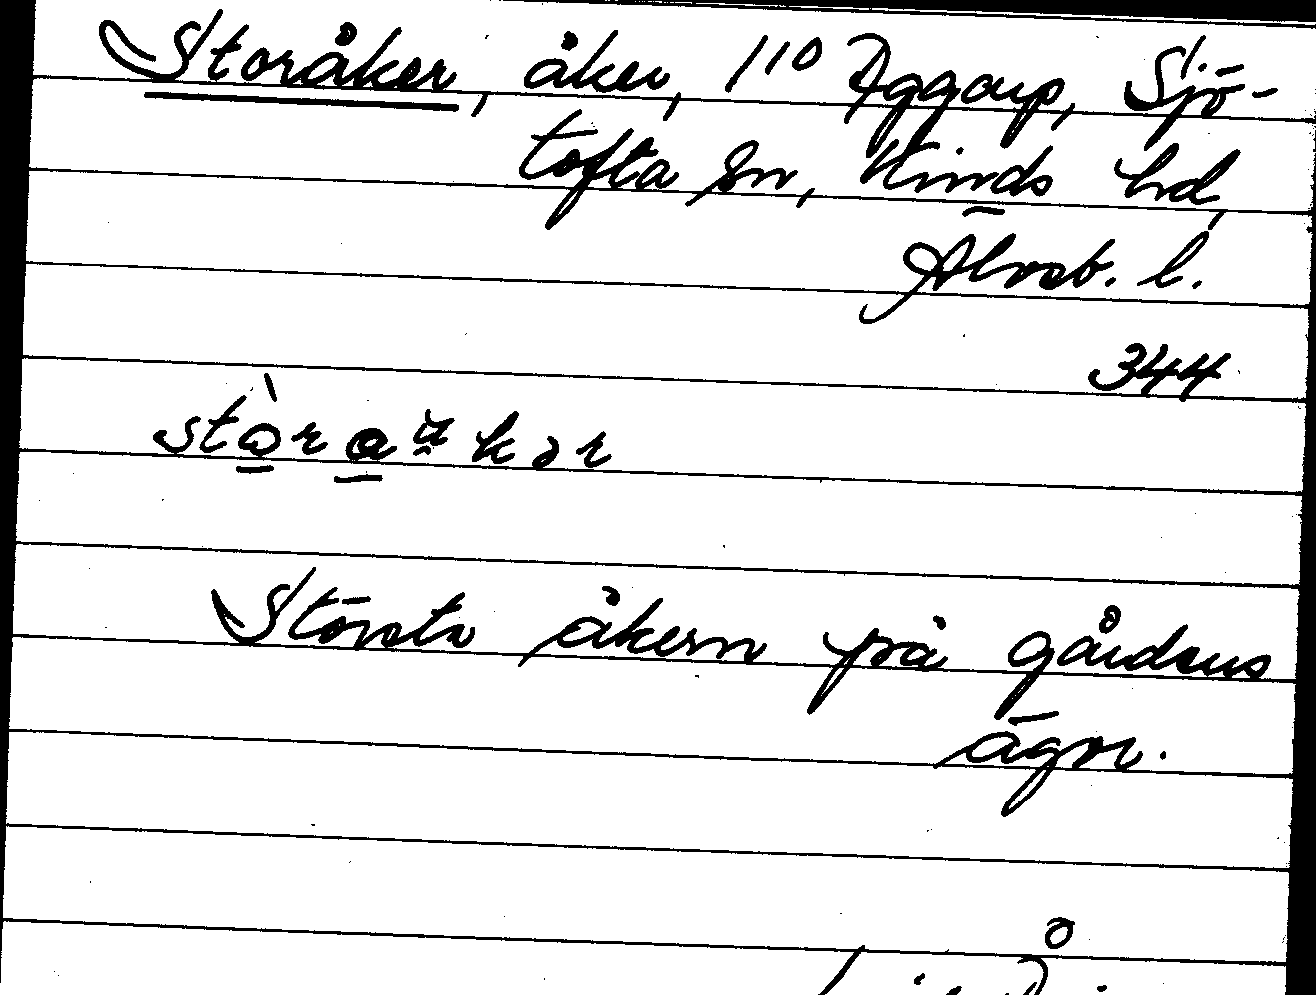 Storåker, åker, 1¹⁰ Aggarp, Sjö-
tofta sn, Kinds hd,
Älvsb. l.
344
Största åkern på gårdens
ägor.